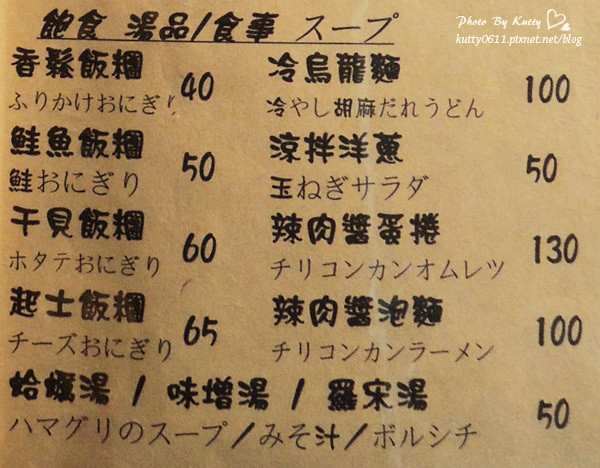 Photo By Kutty
kutty0611.pixnet.net/blog
飽食 湯品/食事 スープ
香鬆飯糰 40
ふりかけおにぎり
鮭魚飯糰 50
鮭おにぎり
干貝飯糰 60
ホタテおにぎり
起士飯糰 65
チーズおにぎり
冷烏龍麵 100
冷やし胡麻だれうどん
涼拌洋蔥 50
玉ねぎサラダ
辣肉醬蛋捲 130
チリコンカンオムレツ
辣肉醬泡麵 100
チリコンカンラーメン
蛤蠣湯 / 味增湯 / 羅宋湯 50
ハマグリのスープ/みそ汁/ボルシチ